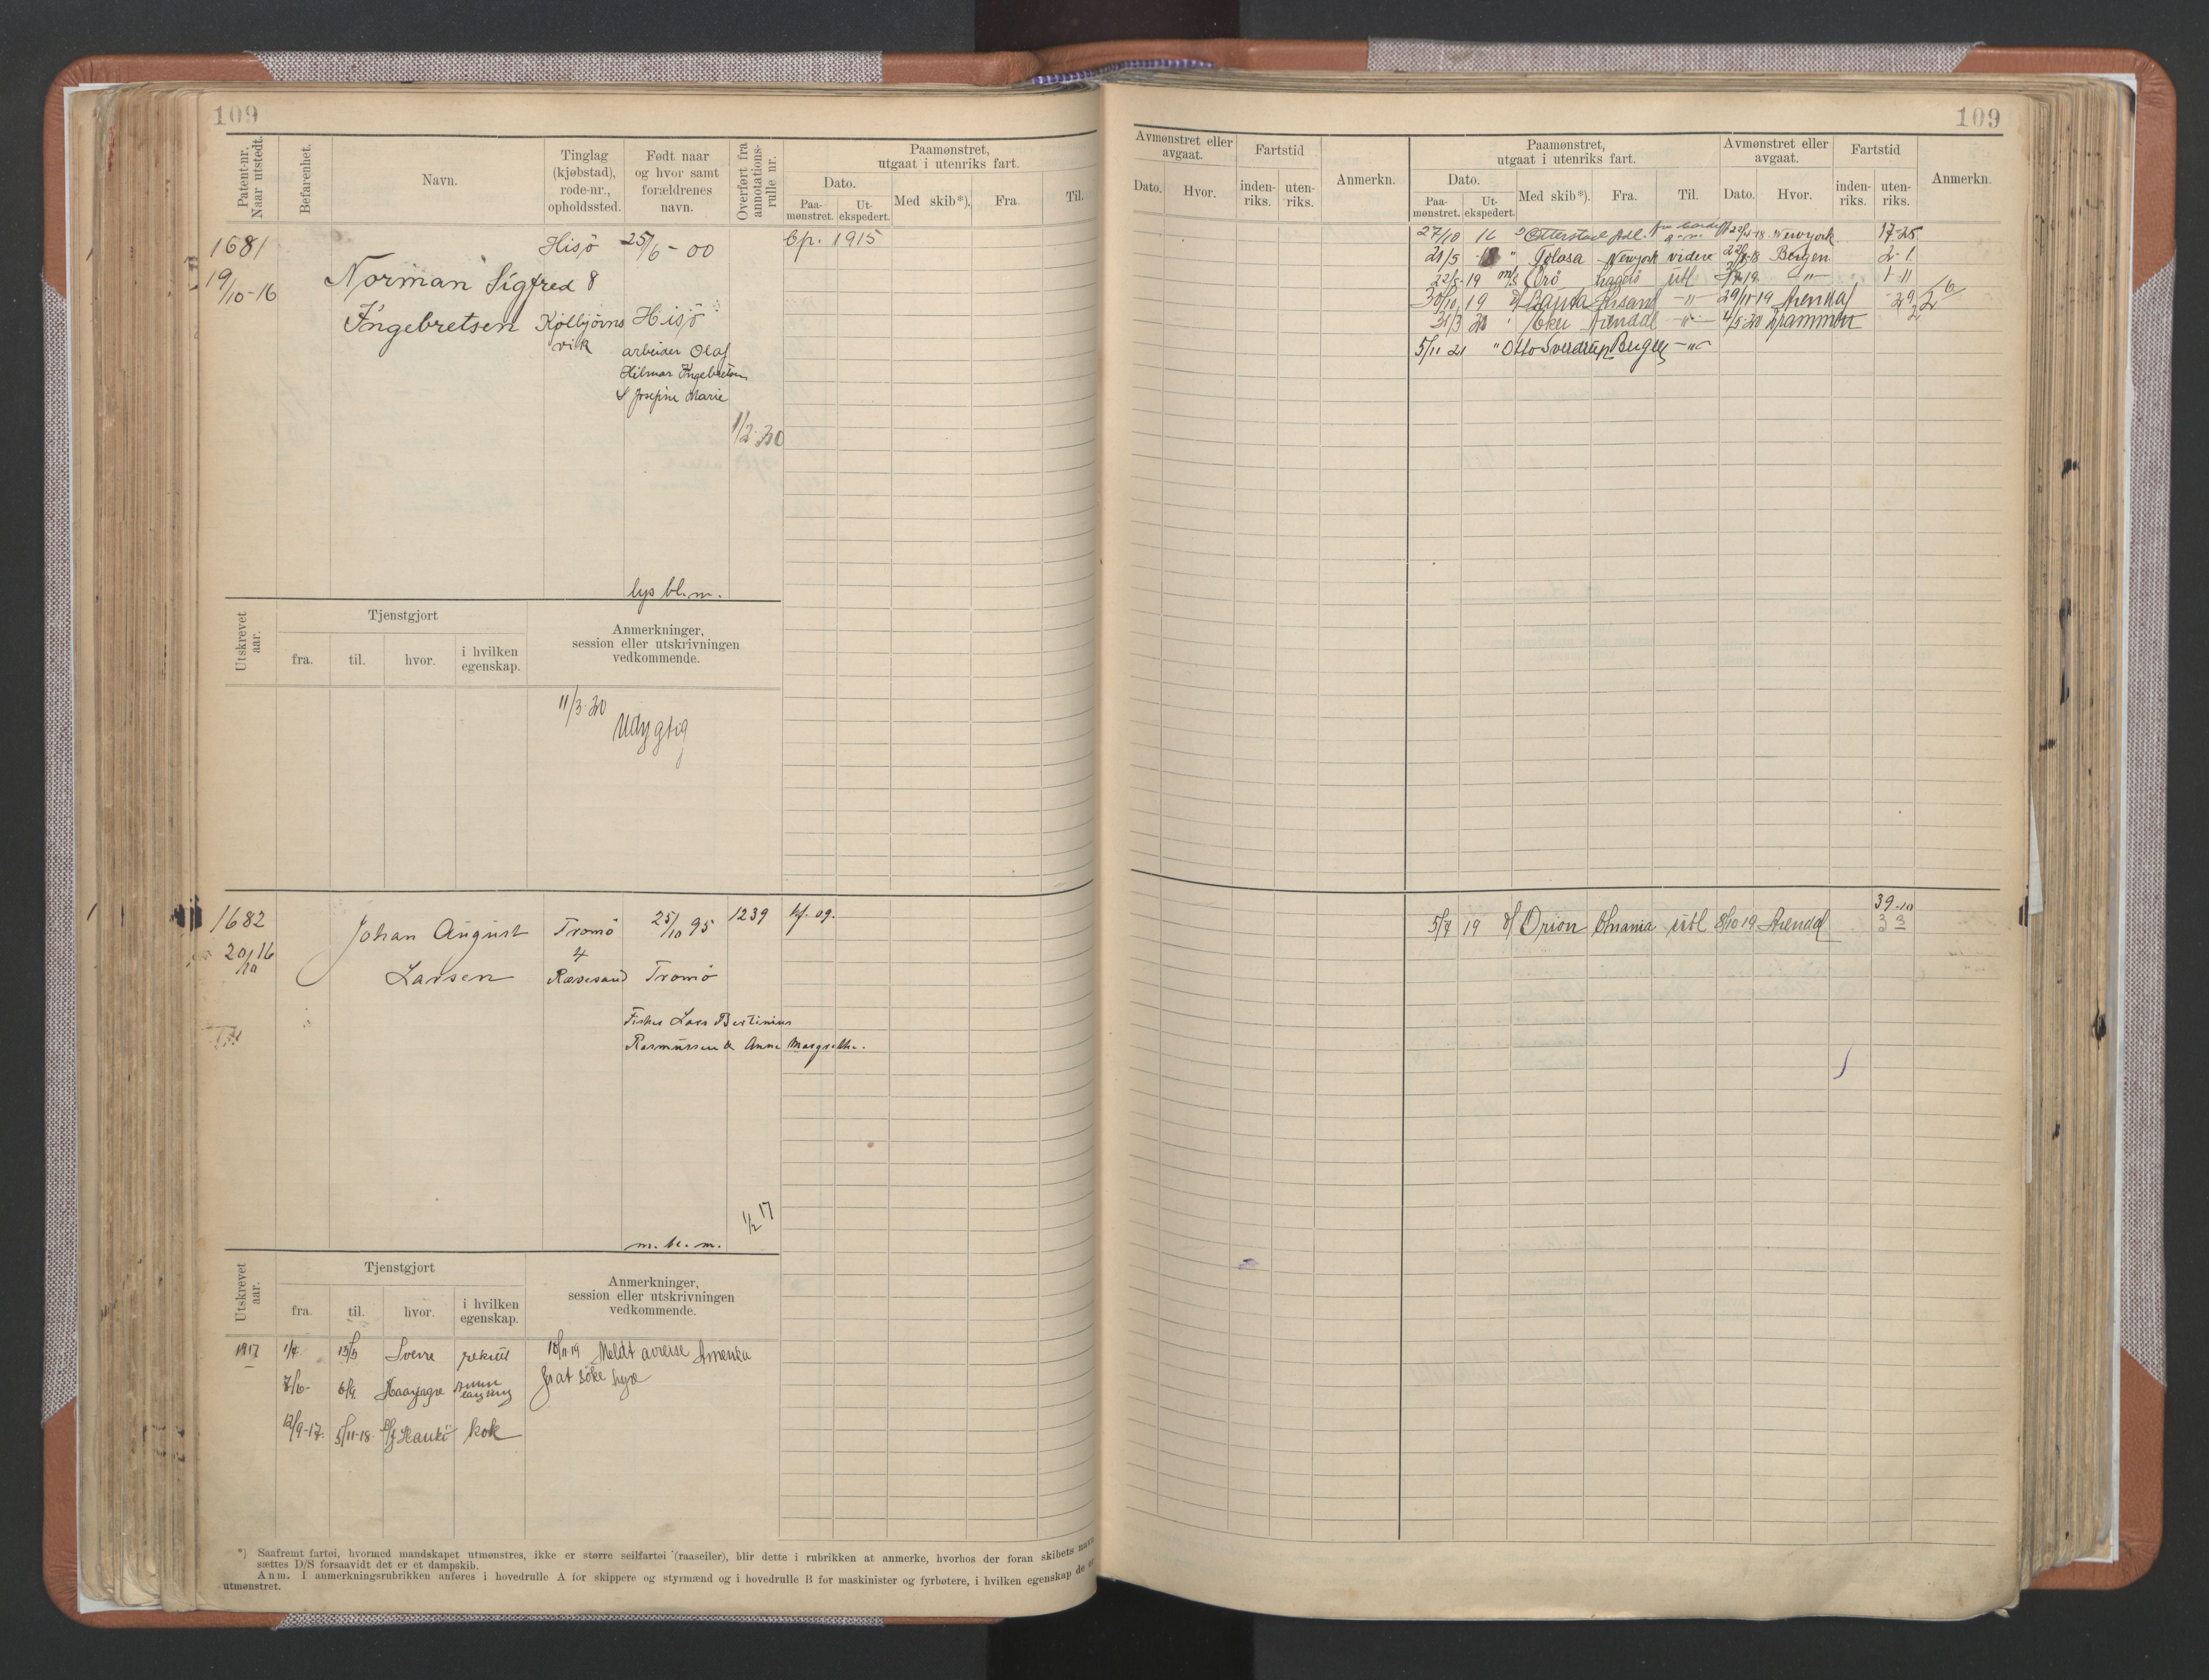 109
Patent-nr. Naar utstedt.
Befarenhet.
Navn.
Tinglag (kjøbstad), rode-nr., opholdssted.
Født naar og hvor samt forældrenes navn.
Overført fra annotations-rulle nr.
Paamønstret, utgaat i utenriks fart.
Dato.
Paa-mønstret.
Ut-ekspedert.
Med skib*).
Fra.
Til.
1681
19/10-16
Norman Sigfred
Ingebretsen
Hisö
8
Kolbjörns
vik
25/6-00
Hisö
arbeider Olaf
Hilmar Ingebretsen
& Josefine Marie
1/2-20
lys bl. m.
1915
Utskrevet aar.
Tjenstgjort
fra.
til.
hvor.
i hvilken egenskap.
Anmerkninger, session eller utskrivningen vedkommende.
11/3-20
Udygtig
1682
20/10 16
Johan August
Larsen
Tromö
4
Rævesand
25/10 95
Tromö
Fisker Lars Bertinius
Rasmussen & Anne Margrethe.
1239
kf. 09.
1/2 17
m. bl. m.
Utskrevet aar.
Tjenstgjort
fra.
til.
hvor.
i hvilken egenskap.
Anmerkninger, session eller utskrivningen vedkommende.
1917 1/4 15/5 Sverre rekrut
18/11-19 Meldt avreise Amerika
for at söke hyre
12/9-17. 5/11-18 Hankö kok
*) Saafremt fartøi, hvormed mandskapet utmønstres, ikke er større seilfartøi (raaseiler), blir dette i rubrikken at anmerke, hvorhos der foran skibets navn
sættes D/S forsaavidt det er et dampskib.
Anm. I anmerkningsrubrikken anføres i hovedrulle A for skippere og styrmænd og i hovedrulle B for maskinister og fyrbøtere, i hvilken egenskap de er
utmønstret.
109
Avmønstret eller avgaat.
Dato.
Hvor.
Fartstid
inden-riks.
uten-riks.
Anmerkn.
Paamønstret, utgaat i utenriks fart.
Dato.
Paa-mønstret.
Ut-ekspedert.
Med skib*).
Fra.
Til.
Avmønstret eller avgaat.
Dato.
Hvor.
Fartstid
inden-riks.
uten-riks.
Anmerkn.
27/10 16 Otterstad Newyork 17-25
21/5 18 " Tolosa Newyork videre Bergen 2-1
22/5-19 m/s Orö utl -"- 1-11
30/10 19 Bauta Krsand -"- 29/11-19 Arendal -29
31/3 20 Arendal -"- 4/5-20 Drammen
5/11 21 " Otto Sverdrup Bergen -"-
39-10
5/7 19 d/ Orion Chrania utl 8/10 19 Arendal 3 3